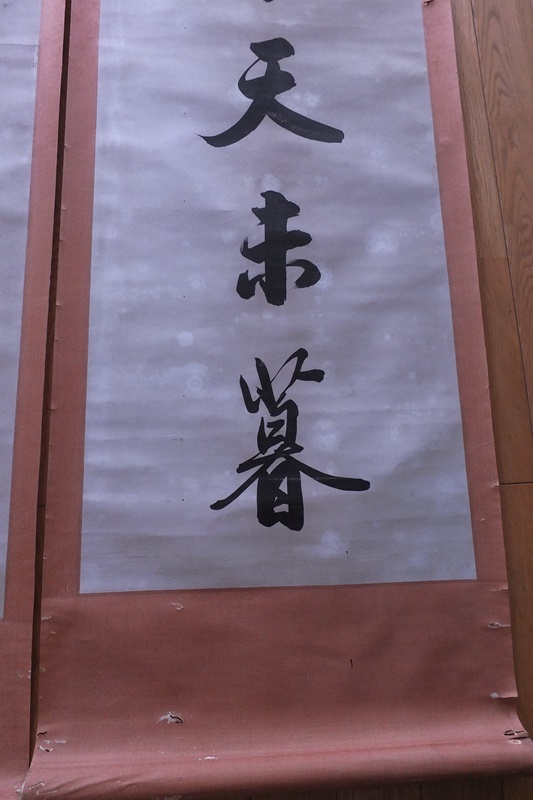 天未暮